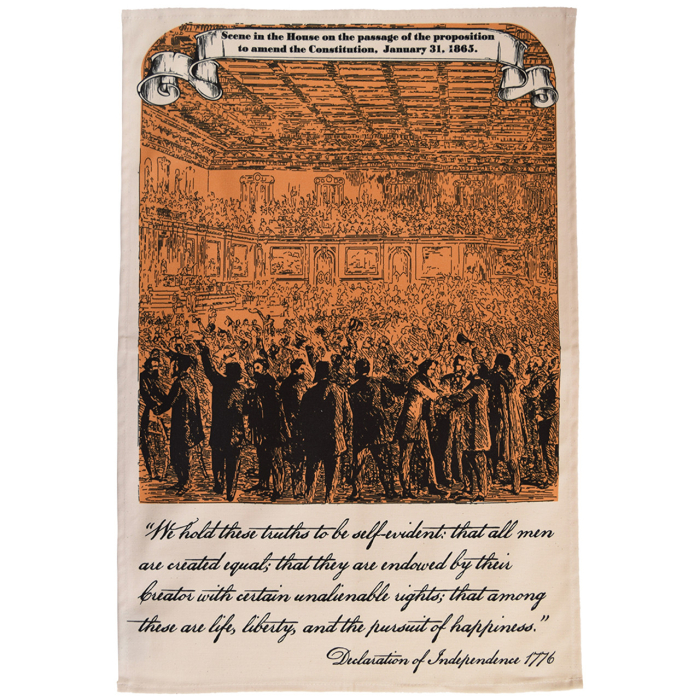 Scene in the House on the passage of the proposition
to amend the Constitution, January 31, 1865.
"We hold these truths to be self-evident: that all men
are created equal; that they are endowed by their
Creator with certain unalienable rights; that among
these are life, liberty, and the pursuit of happiness."
Declaration of Independence 1776